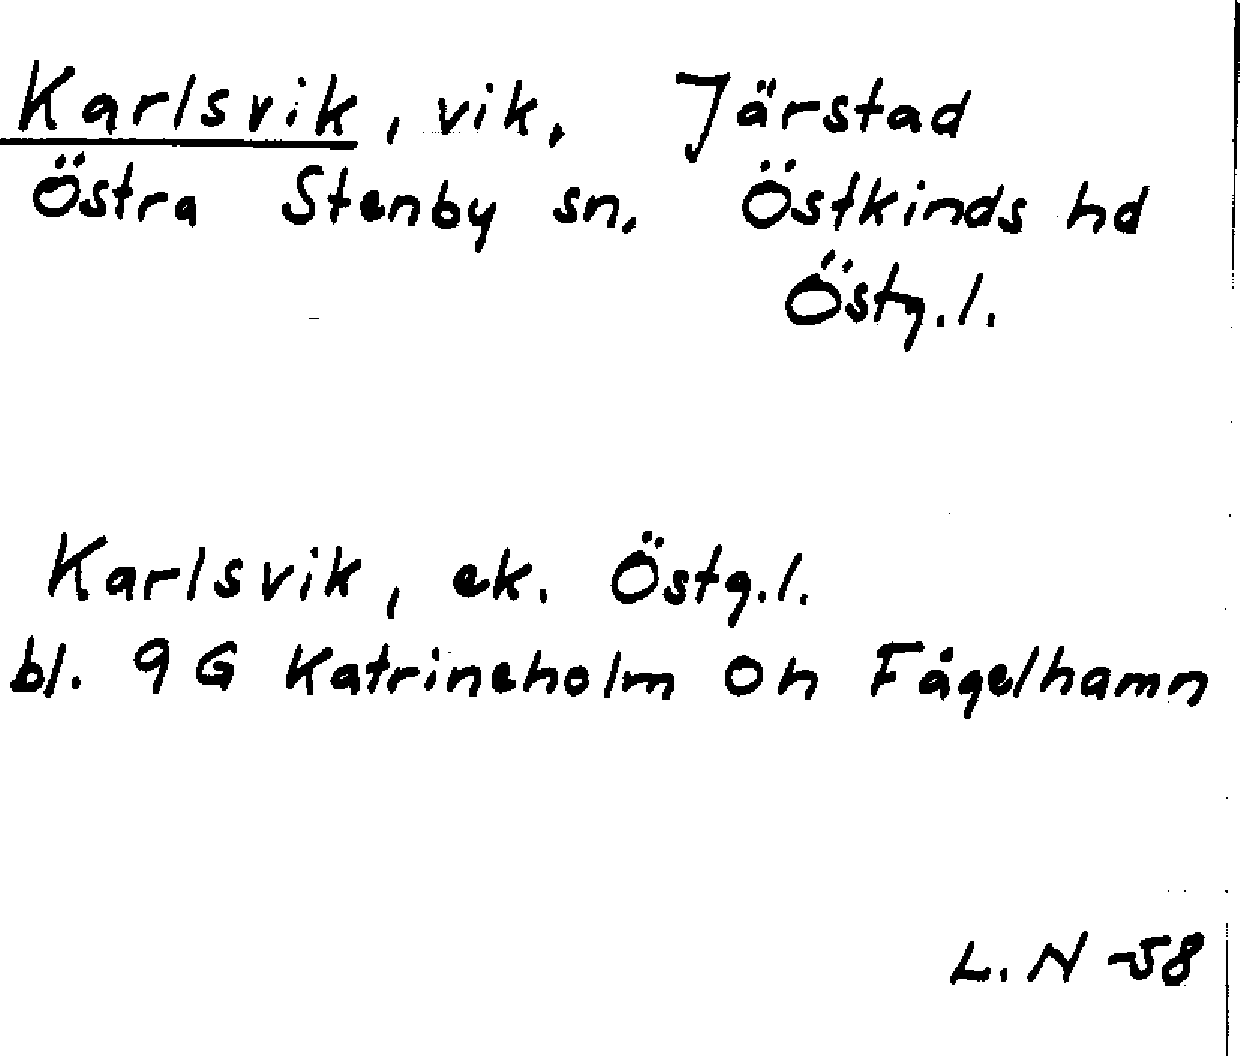 Karlsvik, vik, Järstad
Östra Stenby sn, Östkinds hd
Östg.l.
Karlsvik, ek. Östg.l.
bl. 9 G Katrineholm Oh Fågelhamn
L. N -58